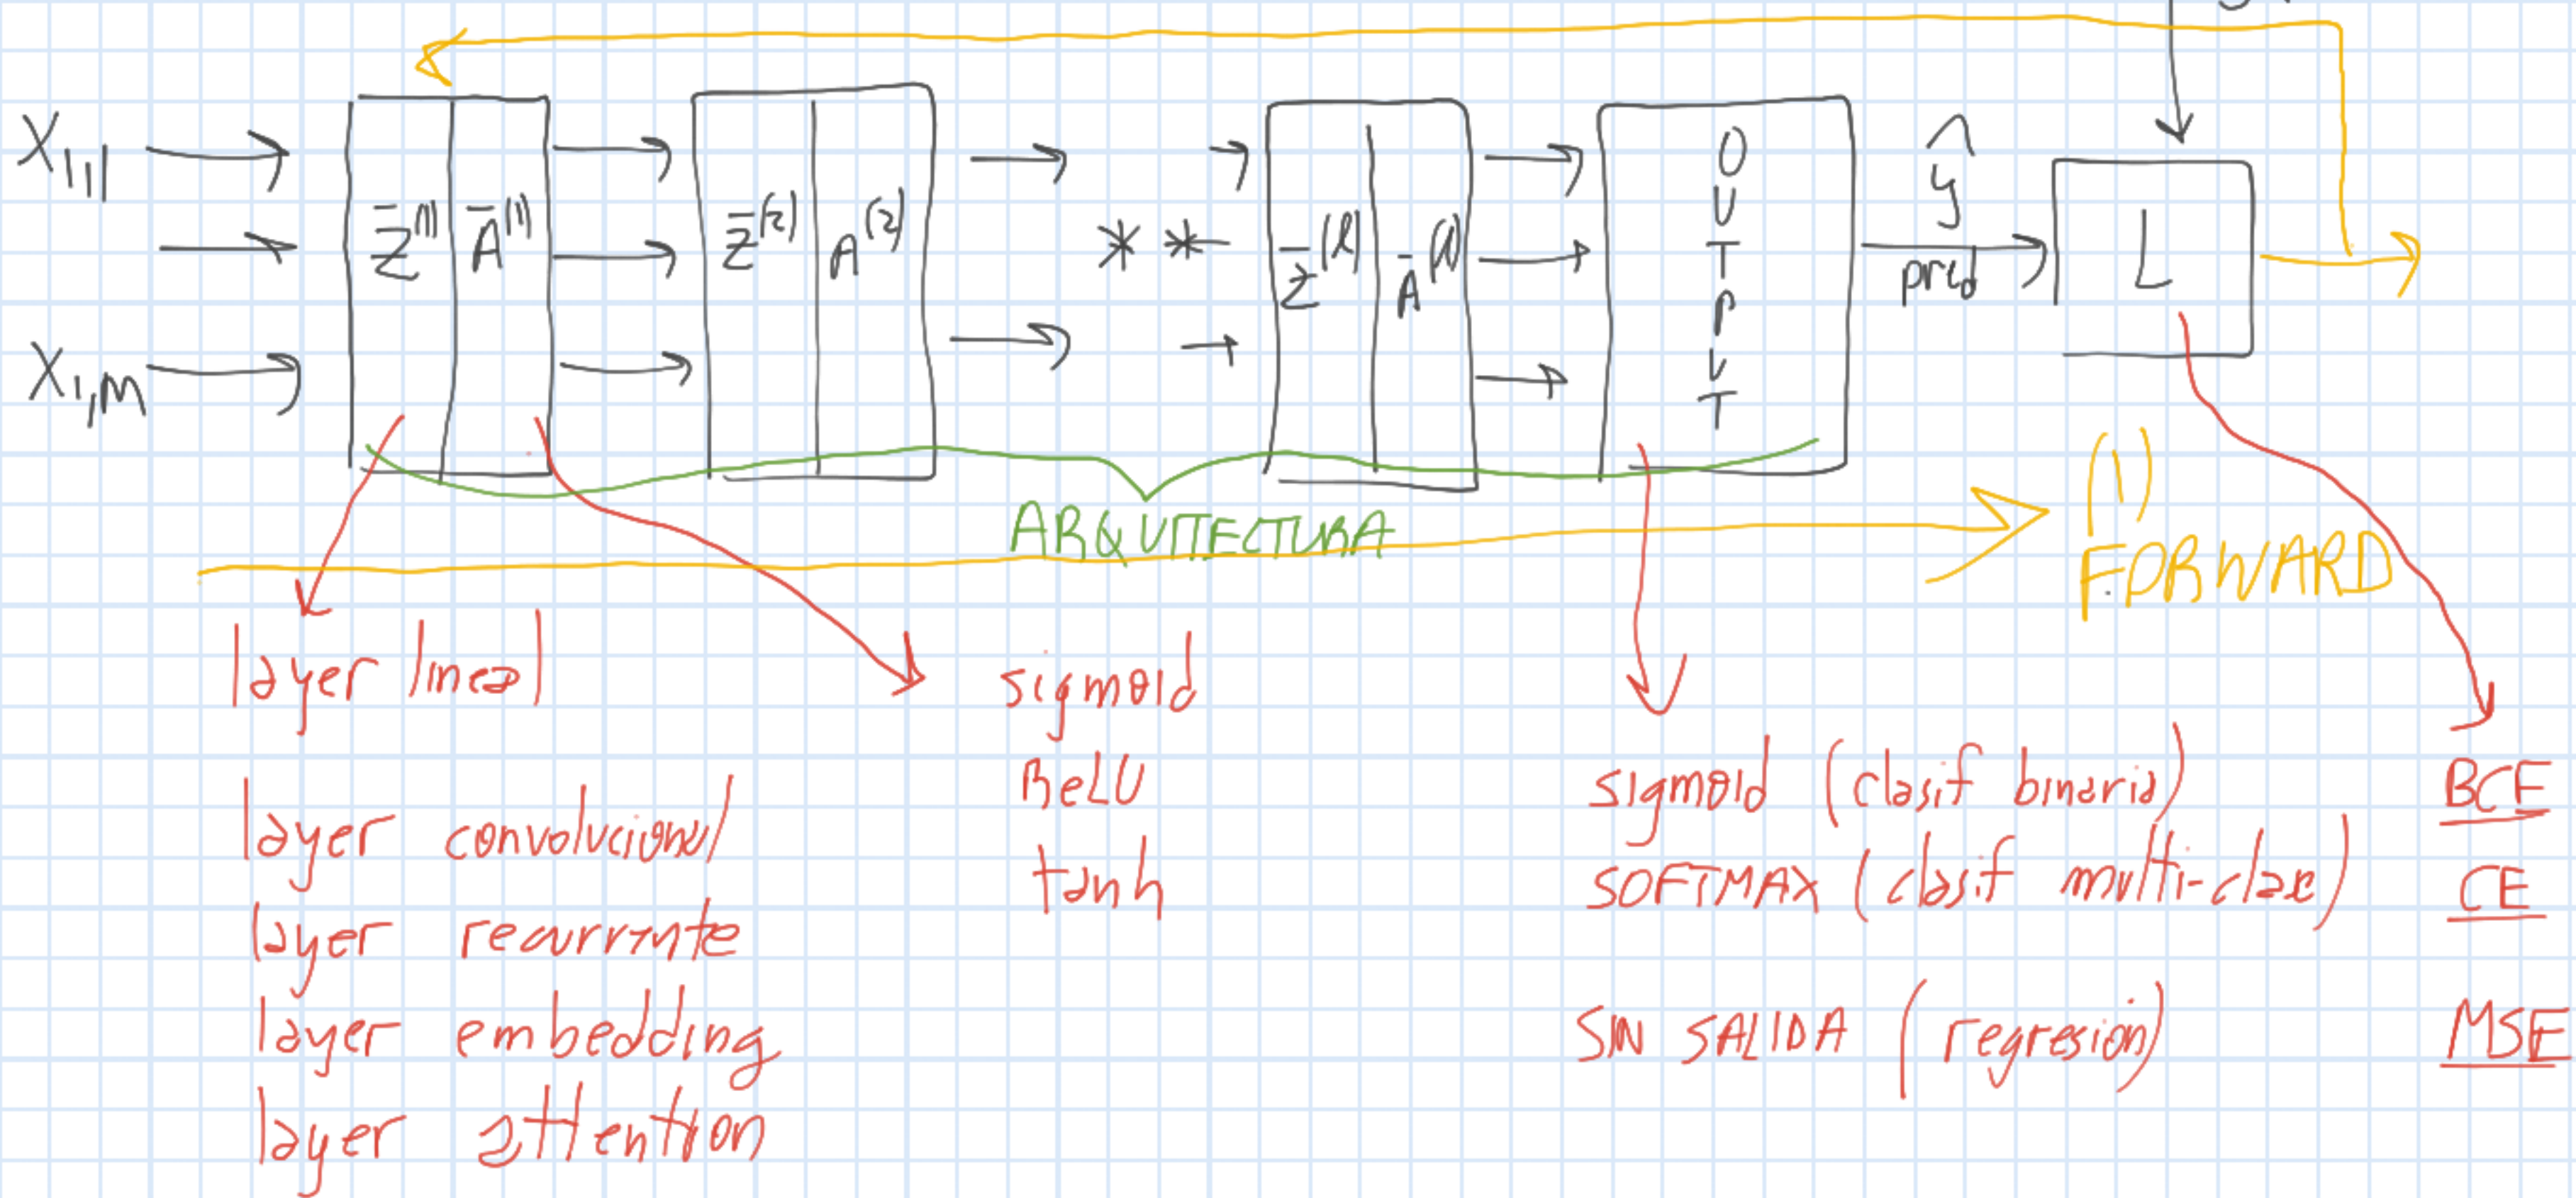 X1,1
Z̄(1) Ā(1)
Z̄(2) A(2)
* *
Z̄(l) Ā(l)
OUTPUT
ŷ
pred
L
X1,m
ARQUITECTURA
(1)
FORWARD
layer lineal
layer convolucional
layer recurrente
layer embedding
layer attention
sigmoid
ReLU
tanh
sigmoid (clasif binaria)
SOFTMAX (clasif multi-clase)
SIN SALIDA (regresion)
BCE
CE
MSE